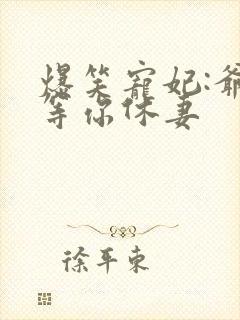 爆笑寵妃:爺
等你休妻
徐平東